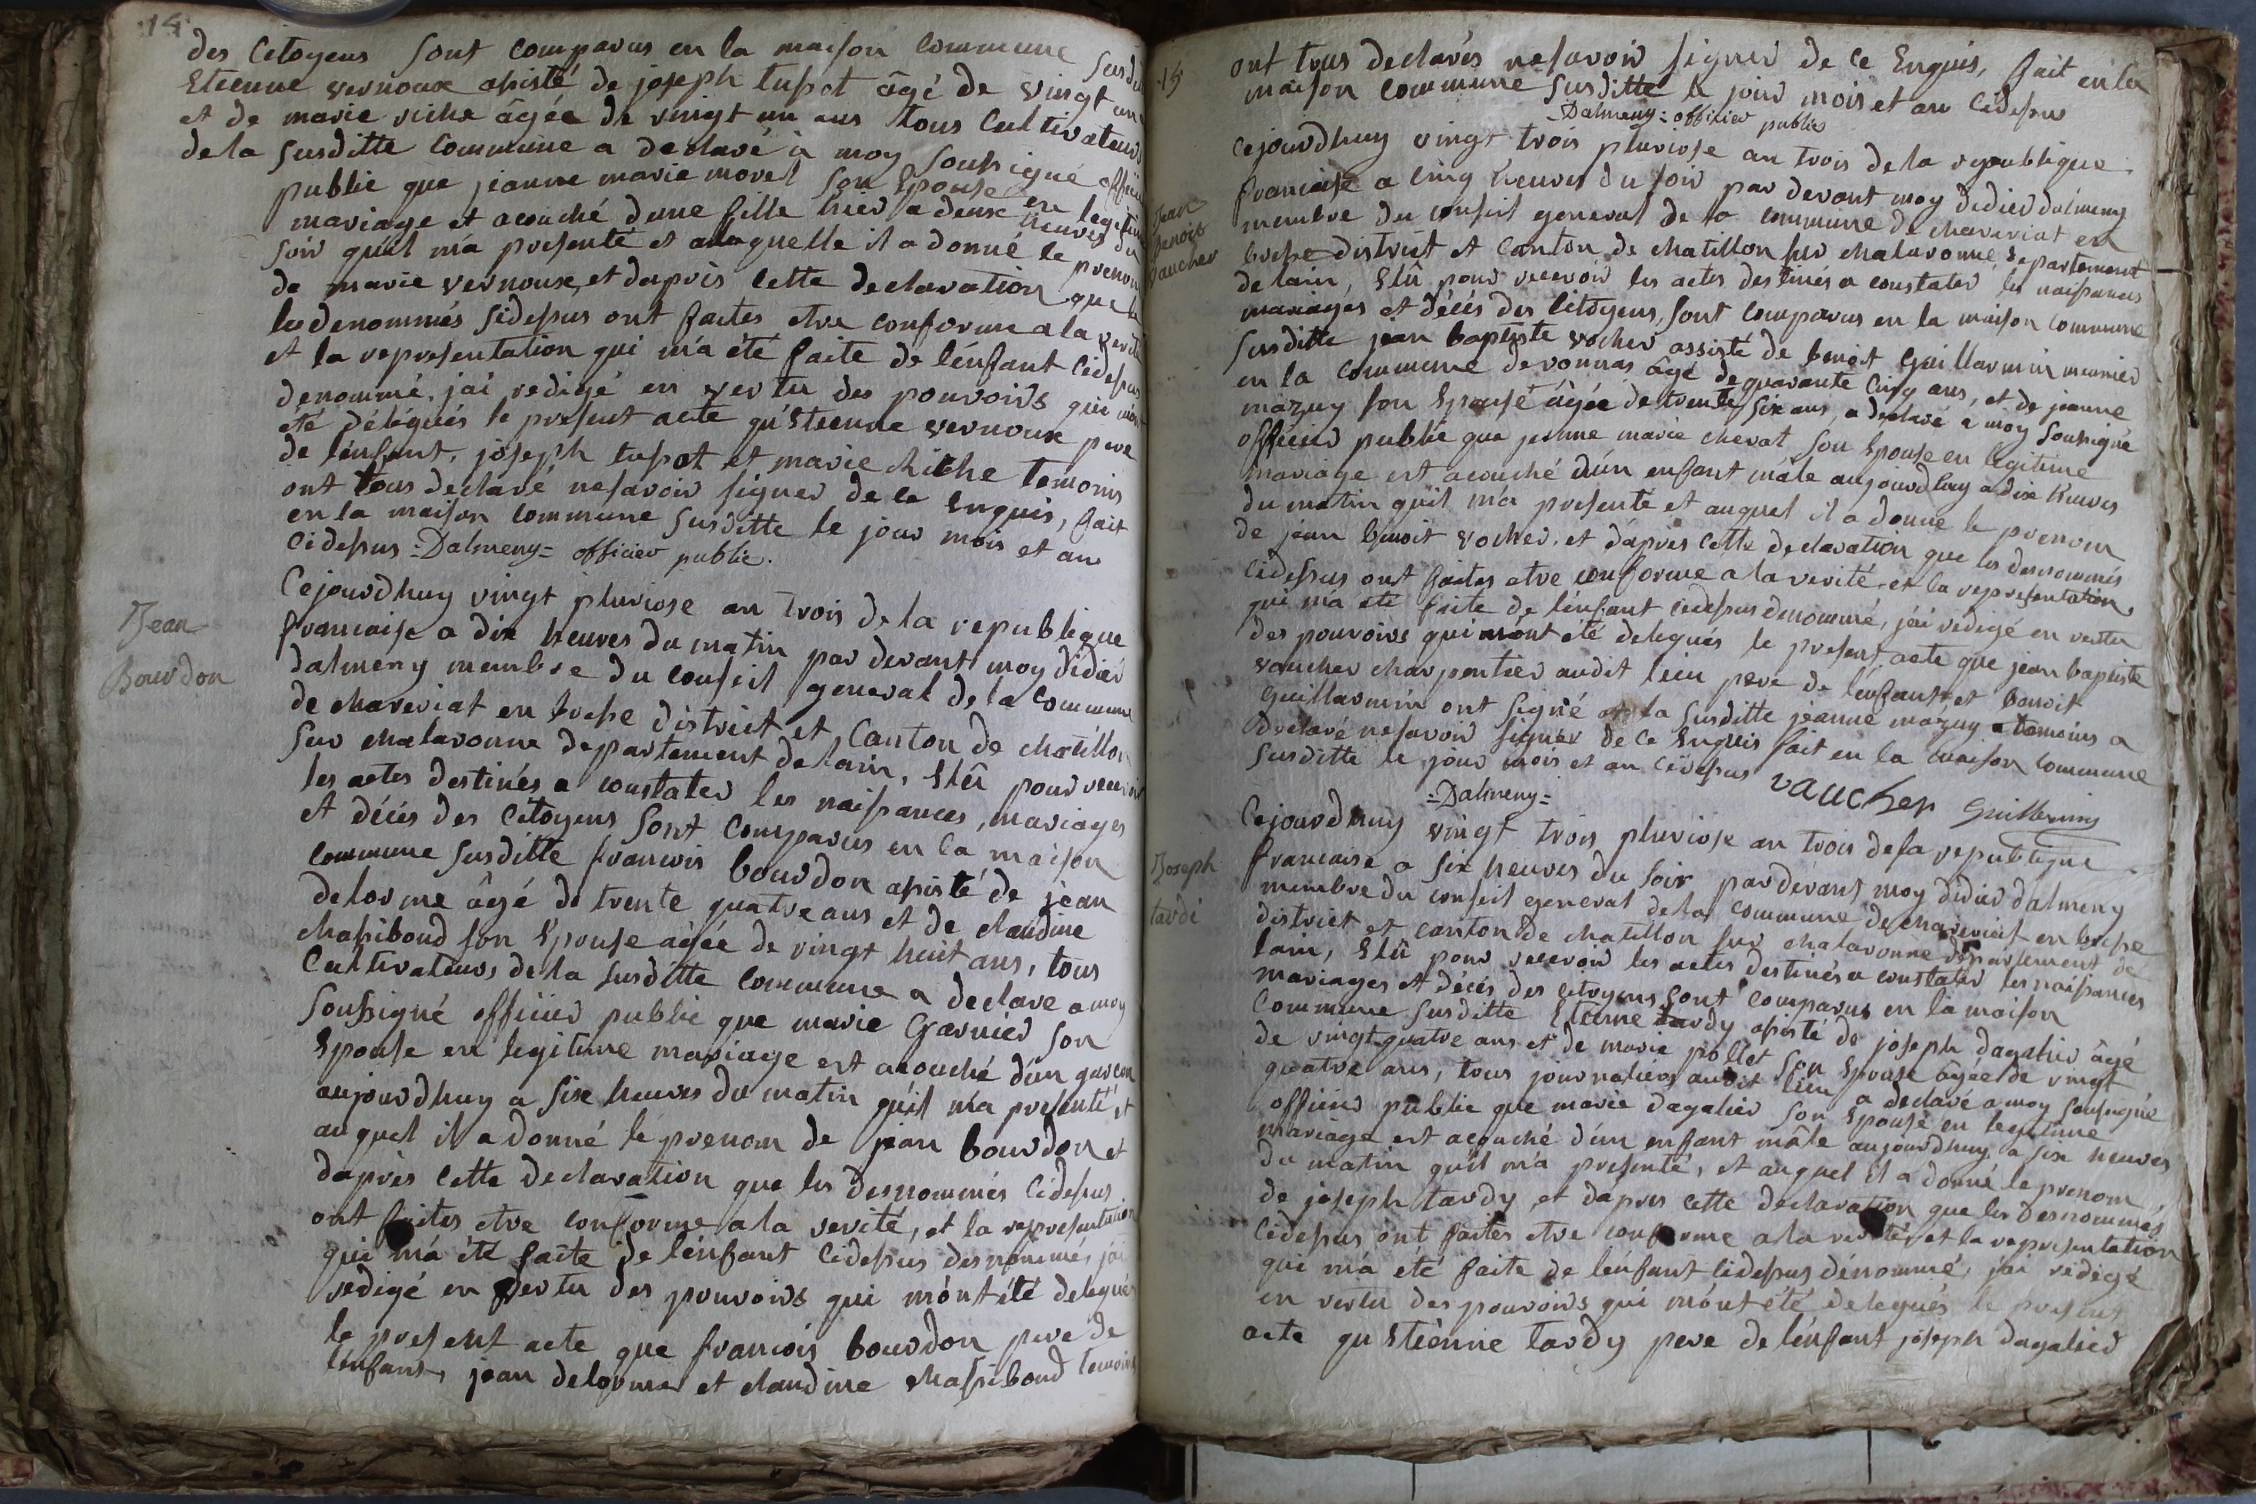 14
des Citoyens sont comparus en la maison commune susdi
Etienne vernoux assisté de joseph tupot âgé de vingt un
et de marie riche âgée de vingt un ans tous Cultivateurs
de la susditte commune a declaré à moy soussigné offi
public que jeanne marie morel son Epouse en legitim
mariage et acouché dune fille hier a deux heures du
soir quil ma presenté et alaquelle il a donné le prenom
de marie vernoux, et dapris cette declaration que
les denommés sidessus ont faites etre conforme a la verite
et la representation qui m'a été faite de l'enfant cidessus
denommé, jai redigé en vertu des pouvoirs qui mon
été délégués le present acte qu'Etienne vernoux pere
de l'enfant, joseph tupot et marie chiche temoins
ont tous declaré ne savoir signer de ce Enquis, fait
en la maison commune susditte le jour mois et an
cidessus =Dalmeny= officier public.
Jean
Bourdon
Cejourdhuy vingt pluviose an trois de la republique
francaise a dix heures du matin par devant moy didier
dalmeny membre du conseil general de la commune
de chaveriat en bresse district et Canton de chatillon
sur chalaronne departement de lain, Elû pour recevoir
les actes destinés a constater les naissances, mariages
et décés des citoyens sont comparus en la maison
commune susditte francois bourdon assisté de jean
delorme âgé de trente quatre ans et de claudine
chassiboud son Epouse agée de vingt huit ans, tous
Cultivateurs de la susditte commune a declare a moy
soussigné officier public que marie Garnier son
Epouse en legitime mariage est acouché d'un garcon
aujourdhuy a six heures du matin qu'il m'a presenté et
au quel il a donné le prenom de jean bourdon et
dapris cette declaration que les desnommés cidessus
ont faites etre conforme a la verité, et la representation
qui m'a été faite de l'enfant cidessus desnommé, jai
redigé en vertu des pouvoirs qui m'ont été delegués
le present acte que francois bourdon pere de
lenfant, jean delorme et claudine chassiboud temoins
15
ont tous declarés ne savoir signer de ce Enquis, fait en la
maison commune susditte le jour mois et an cidessus
=Dalmeny= officier public
Jean
benoit
vaucher
Cejourdhuy vingt trois pluviose an trois de la republique
francaise a cinq heures du soir par devant moy didier dalmeny
membre du conseil general de la commune de chaveriat en
bresse district et canton de chatillon sur chalaronne departement
de lain, Elû pour recevoir les actes destinés a constater les naissances
mariages et décés des citoyens, sont comparus en la maison commune
susditte jean baptiste vocher assisté de benoit Guillarmin meunier
en la commune de vonnas âgé de quarante cinq ans, et de jeanne
mazuy son Epouse âgée de trente six ans, a declaré a moy soussigné
officier public que jeanne marie chevat son Epouse en legitime
mariage est acouché d'un enfant mâle aujourdhuy a dix heures
du matin qu'il m'a presenté et auquel il a donne le prenom
de jean benoit vocher, et d'apres cette declaration que les denommés
cidessus ont faites etre conforme a la verité et la representation
qui m'a été faite de l'enfant cidessus denommé, j'ai redigé en vertu
des pouvoirs qui m'ont été delegués le present acte que jean baptiste
vaucher charpentier audit lieu pere de l'enfant et Benoit
Guillarmin ont signé la susditte jeanne mazuy temoins a
declaré ne savoir signer de ce Enquis fait en la maison commune
susditte le jour mois et an cidessus
vaucher Guillermin
=Dalmeny=
Joseph
tardi
Cejourdhuy vingt trois pluviose an trois de la republique
francaise a six heures du soir par devant moy didier dalmeny
membre du conseil general de la commune de chaveriat en bresse
district et canton de chatillon sur chalaronne departement de
lain, Elû pour recevoir les actes destinés a constater les naissances
mariages et décés des citoyens sont comparus en la maison
commune susditte Etienne tardy assisté de joseph dagalier âgé
de vingt quatre ans et de marie pollet son Epouse âgée de vingt
quatre ans, tous journaliers audit lieu a declaré a moy soussigné
officier public que marie dagalier son Epouse en legitime
mariage est acouché d'un enfant mâle aujourdhuy a six heures
du matin qu'il m'a presenté, et auquel il a donné le prenom
de joseph tardy et dapres cette declaration que les desnommés
cidessus ont faites etre conforme a la verité, et la representation
qui m'a été faite de l'enfant cidessus dénommé, jai redigé
en vertu des pouvoirs qui m'ont été delegués le present
acte qu'Etienne tardy pere de l'enfant joseph dagalier